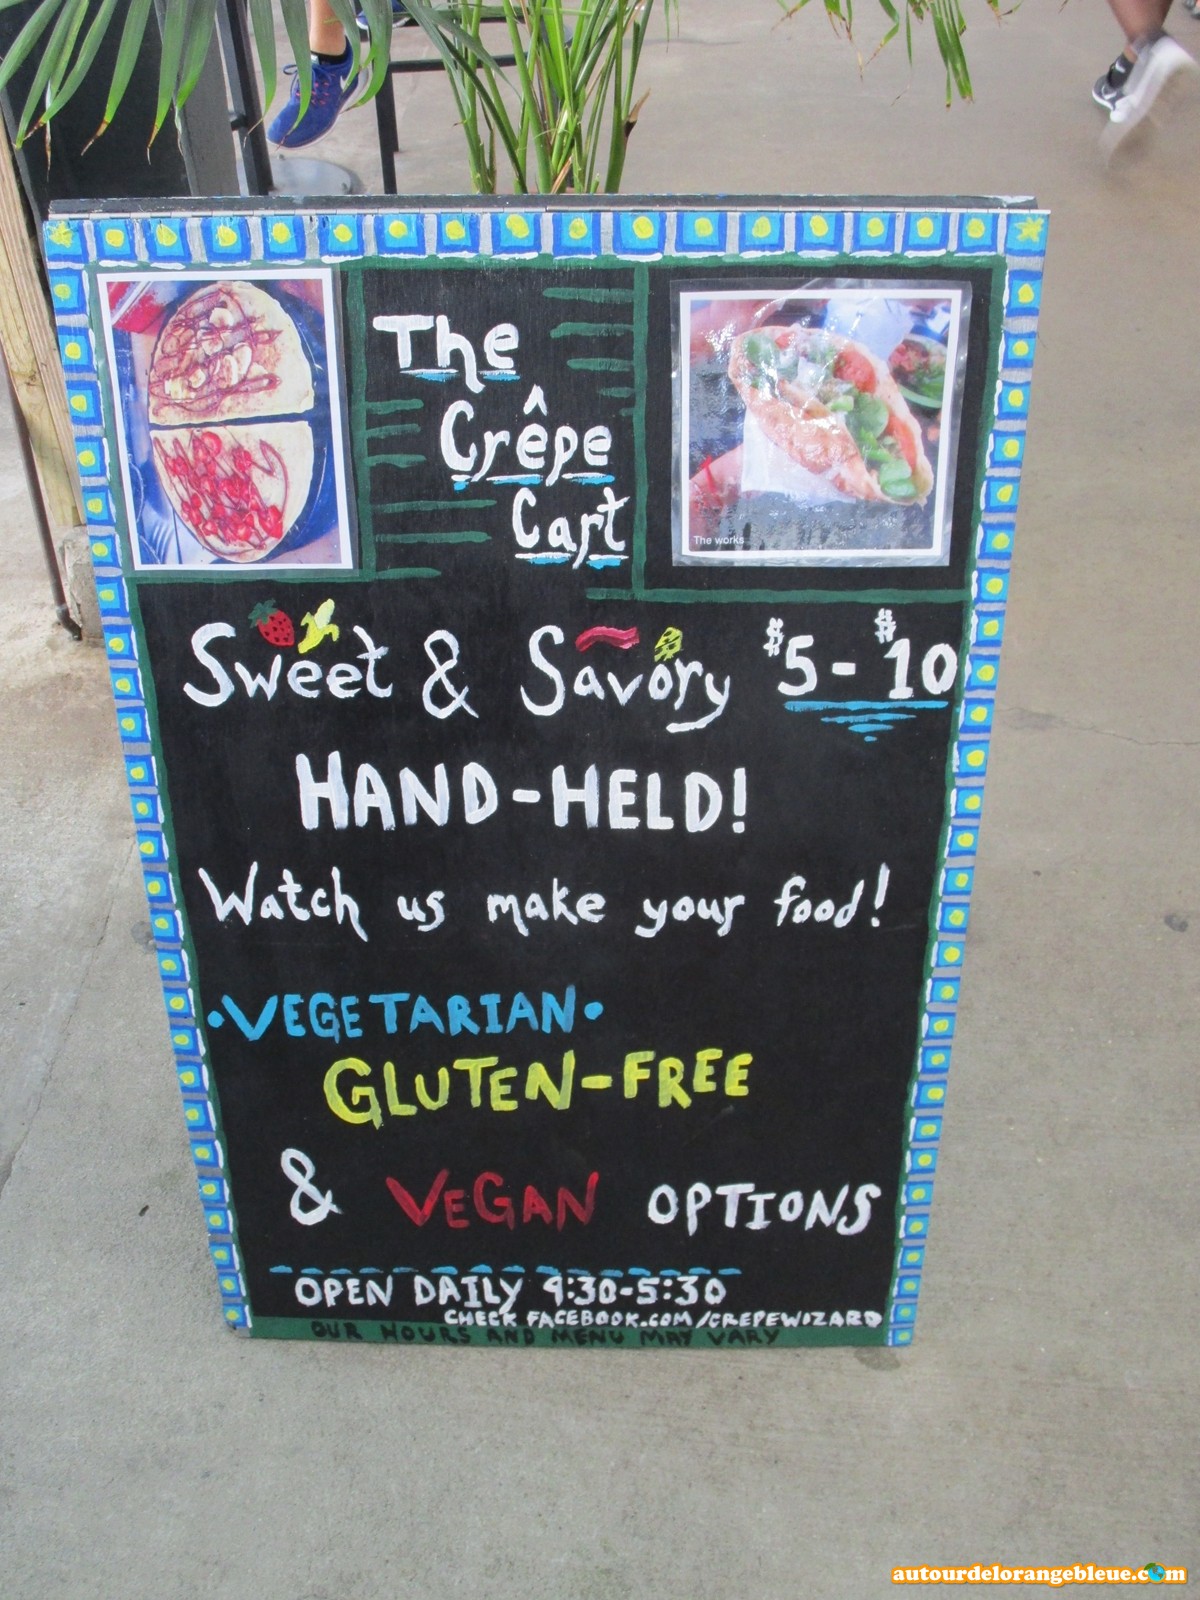 The
Crêpe
Cart
The works
Sweet & Savory $5-$10
HAND-HELD!
Watch us make your food!
•VEGETARIAN•
GLUTEN-FREE
& VEGAN OPTIONS
OPEN DAILY 4:30-5:30
CHECK FACEBOOK.COM/CREPEWIZARD
OUR HOURS AND MENU MAY VARY
autourdelorangebleue.com